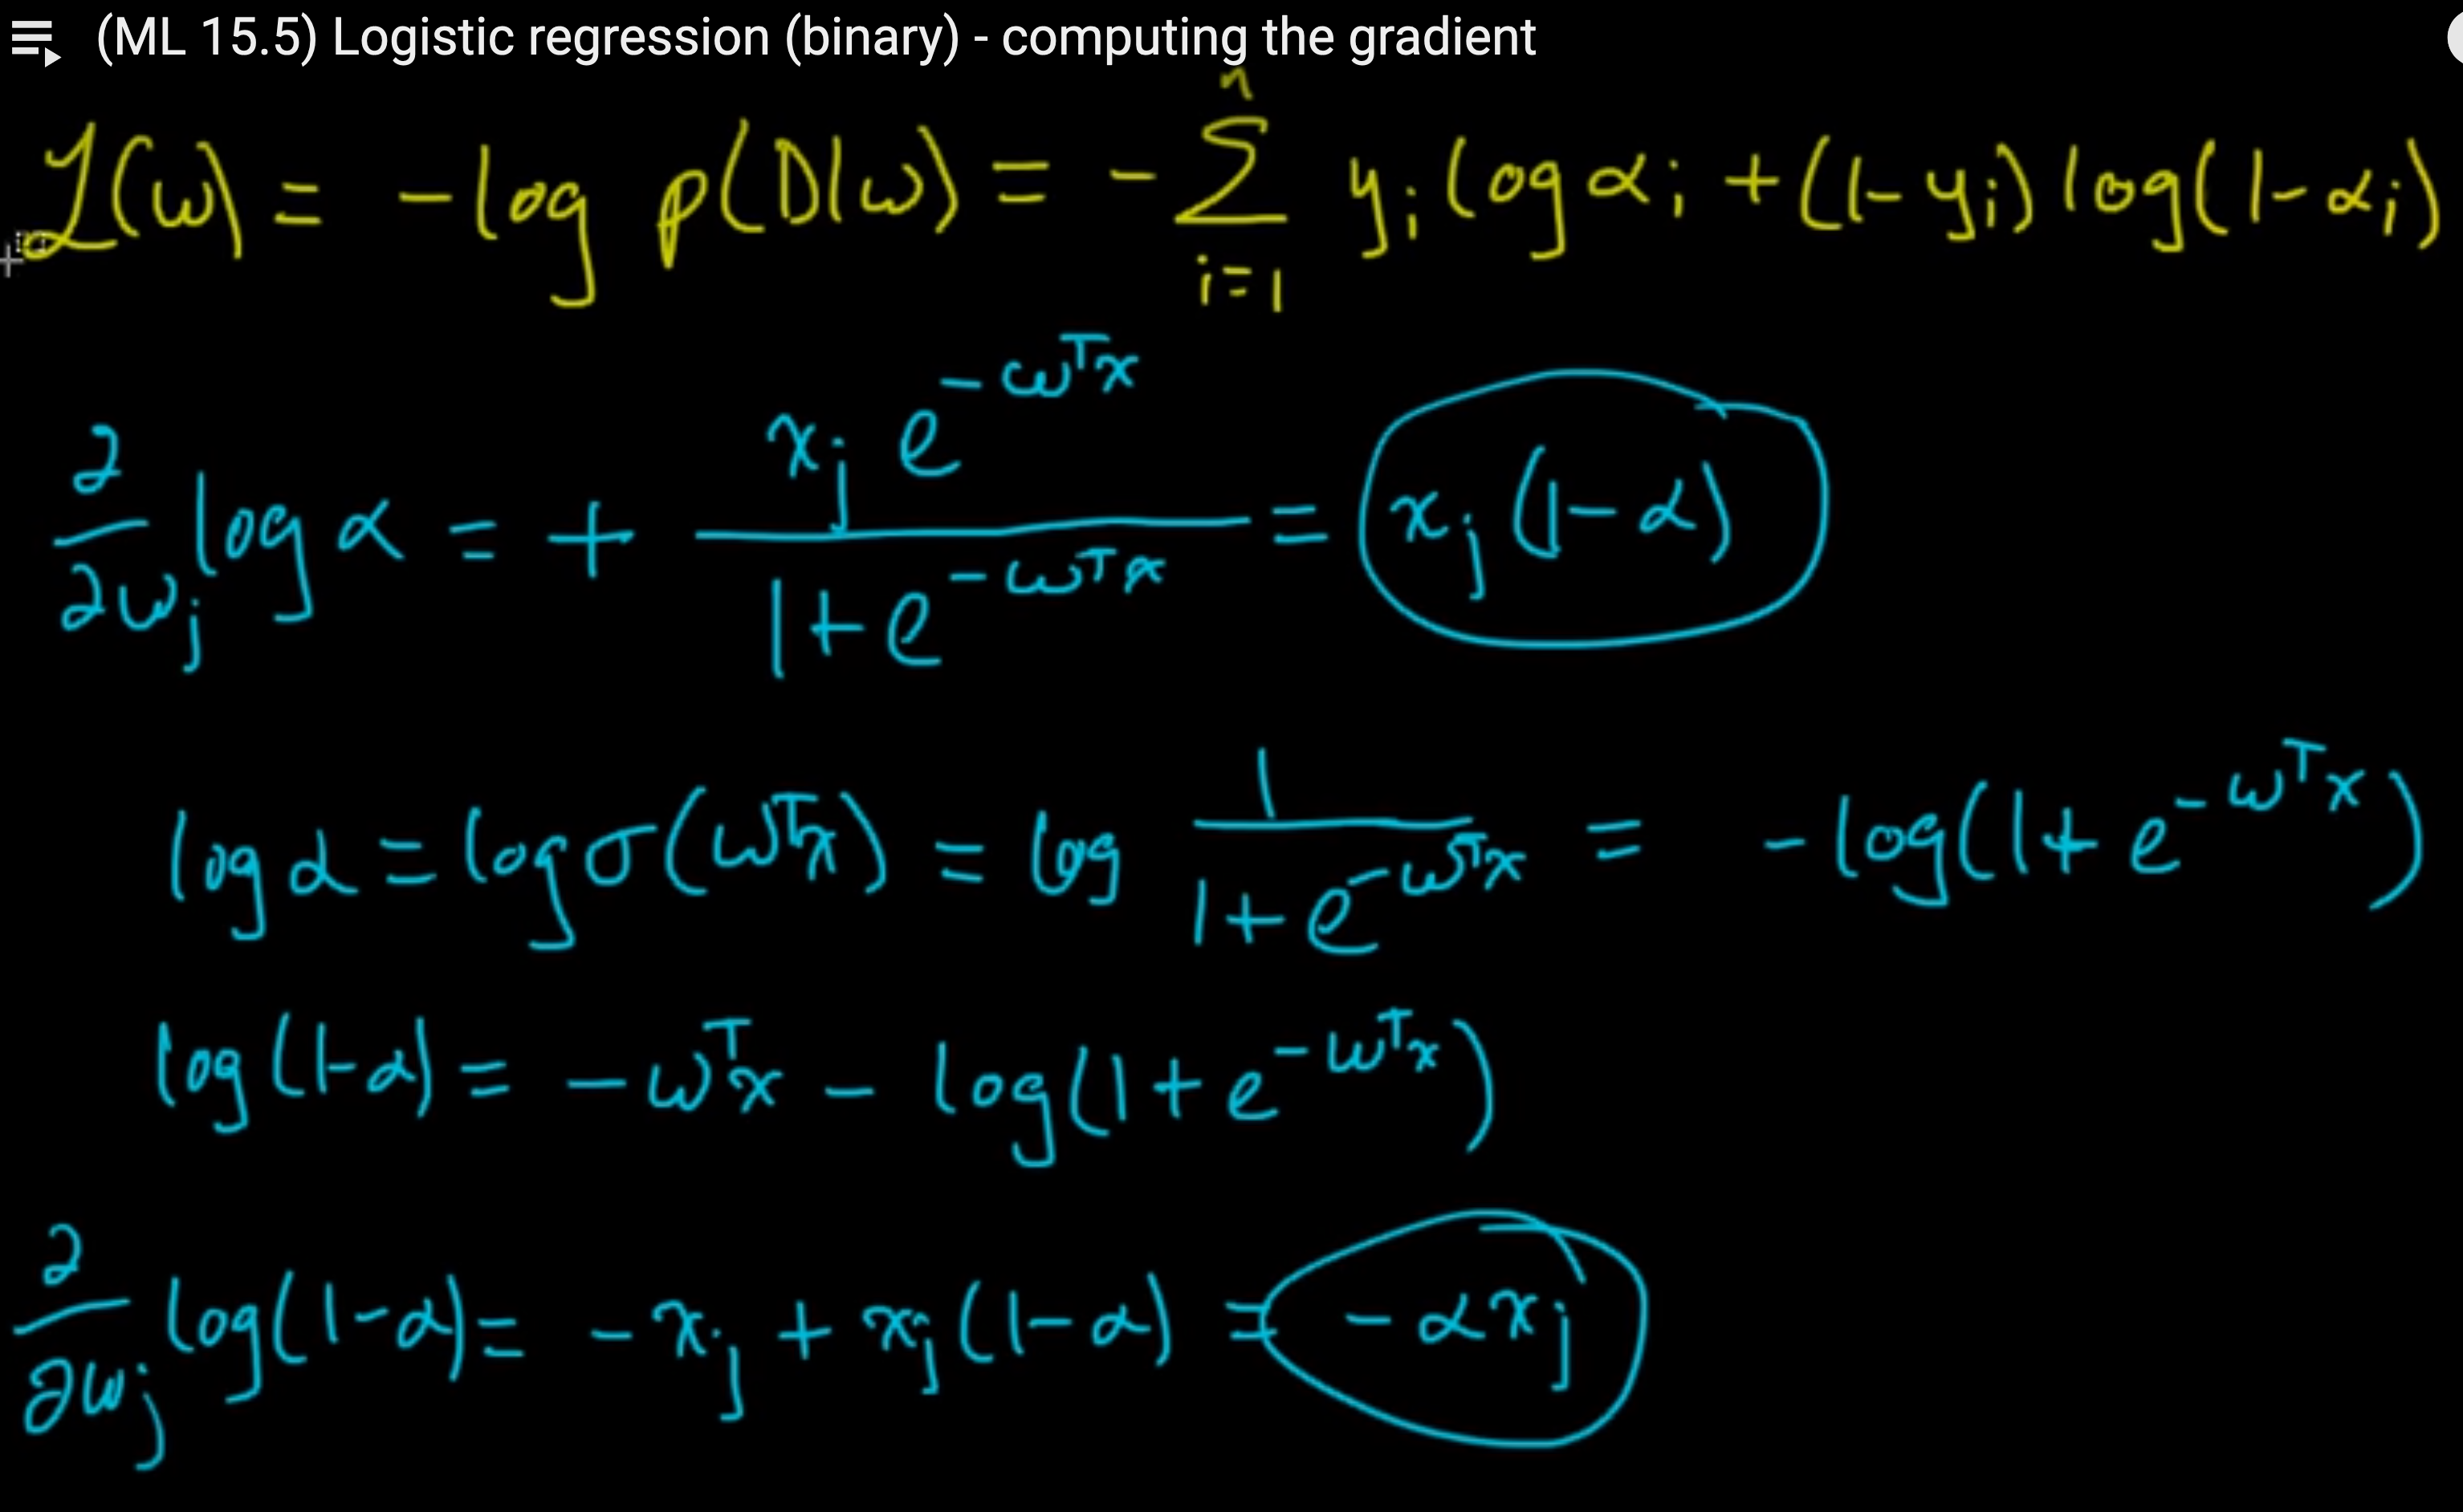 (ML 15.5) Logistic regression (binary) - computing the gradient
ℒ(w) = - log p(D|w) = - ∑_{i=1}^{n} y_i log α_i + (1-y_i) log(1-α_i)
∂/∂w_j log α = + x_j e^{-w^T x} / (1+e^{-w^T x}) = x_j (1-α)
log α = log σ(w^T x) = log 1/(1+e^{-w^T x}) = - log(1+e^{-w^T x})
log(1-α) = - w^T x - log(1+e^{-w^T x})
∂/∂w_j log(1-α) = - x_j + x_j (1-α) = - α x_j